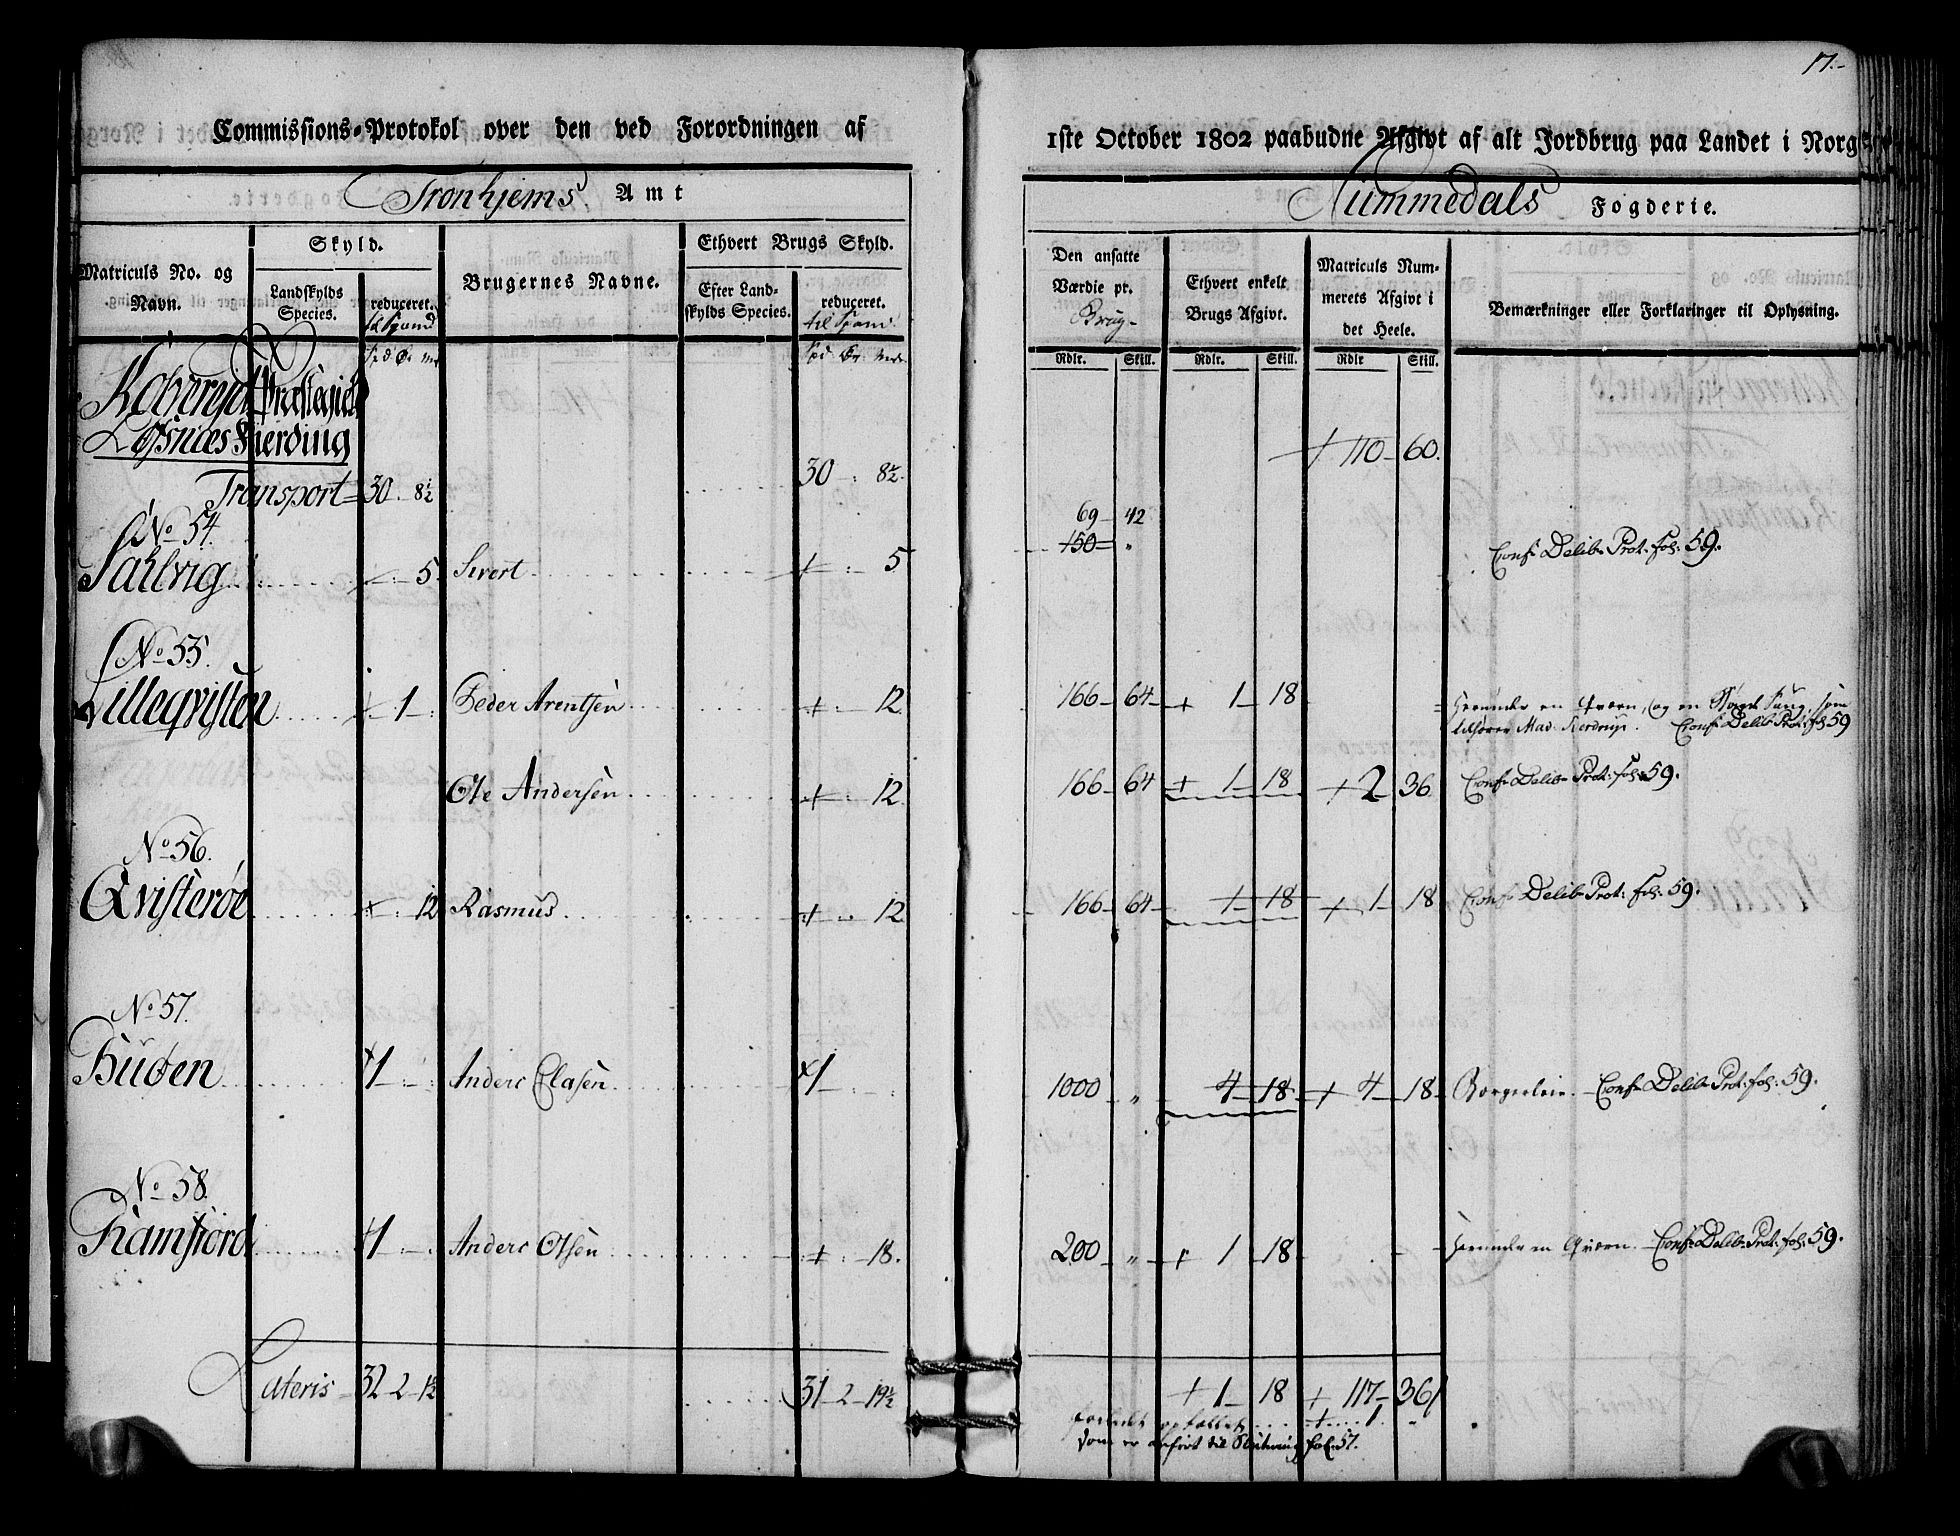 17.-
Commissions-Protokol over den ved Forordningen af
1ste October 1802 paabudne Afgivt af alt Jordbrug paa Landet i Norge
Tronhjems Amt
Nummedals Fogderie.
Matriculs No. og Navn.
Skyld.
Landskylds Species.
reduceret. til Spand
Brugernes Navne.
Ethvert Brugs Skyld.
Efter Landskylds Species.
reduceret. til Spand.
Den ansatte Værdie pr. Brug-
Ethvert enkelt Brugs Afgivt.
Matriculs Nummerets Afgivt i det Heele.
Bemærkninger eller Forklaringer til Oplysning.
Rdlr. Skill. Rdlr. Skill. Rdlr Skill.
Præstegield
Fierding
+ 110 - 60.
Transport - 30 : 8½ 30 : 8½.
No 54.
Sahlvig + : - 5 Sivert + : - 5 69 - 42
150 - " Conf: Delib: Prot: fol: 59.
No 55.
Lilleqvisten + 1 - : Peder Arentsen + : - 12 166 - 64 - + 1 - 18 = herunder en Qværn, og en som
tilhører Mad: . Conf: Delib: Prot: fol 59
Ole Andersen + : - 12 166 - 64 + 1 - 18 + 2 - 36 Conf: Delib: Prot: fol: 59.
No 56.
Qvisterøe + : 12 Rasmus + : - 12 166 - 64 - 1 - 18 + 1 - 18 Conf: Delib: Prot: fol: 59.
No 57.
Buden +1 - : - Anders Clasen +1 - : - 1000 - " 4 - 18 + 4 - 18 - Borgerleie. - Conf: Delib: Prot: fol: 59.
No 58.
Ramfiord +1 - : - Anders Olsen + : - 18. 200 - " - + 1 - 18 herunder en Qværn. - Conf: Delib: Prot: fol: 59.
Lateris - 32 - 2 - 1½ 31 - 2 - 19½ + 1 - 18 + 117 - 36
+ 1 "
som er anført til Slutning fol: 57.